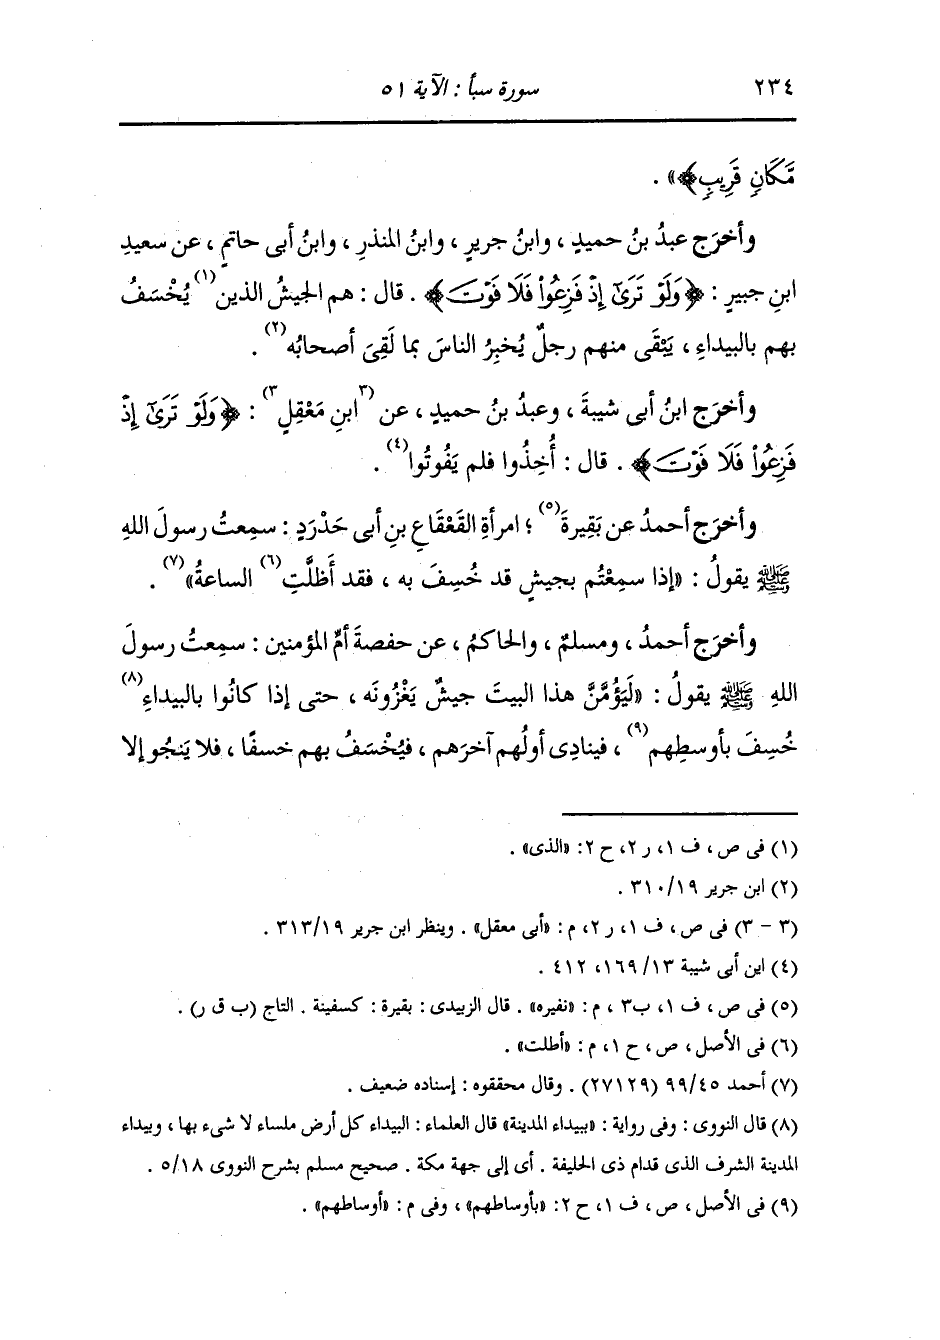 ٢٣٤ سورة سبأ : الآية ٥١
مَّكَانٍ قَرِيبٍ﴾» .
وأخرَج عبدُ بنُ حميدٍ ، وابنُ جريرٍ ، وابنُ المنذرِ ، وابنُ أبى حاتمٍ ، عن سعيدِ
ابنِ جبيرٍ : ﴿وَلَوْ تَرَىٰٓ إِذْ فَزِعُوا۟ فَلَا فَوْتَ﴾ . قال : هم الجيشُ الذين(١) يُخْسَفُ
بهم بالبيداءِ ، يَبْقَى منهم رجلٌ يُخبِرُ الناسَ بما لَقِىَ أصحابُه(٢) .
وأخرَج ابنُ أبى شيبةَ ، وعبدُ بنُ حميدٍ ، عن (٣ابنِ مَعْقِلٍ٣) : ﴿وَلَوْ تَرَىٰٓ إِذْ
فَزِعُوا۟ فَلَا فَوْتَ﴾ . قال : أُخِذُوا فلم يَفُوتُوا(٤) .
وأخرَج أحمدُ عن بَقِيرةَ(٥) ؛ امرأةِ القَعْقَاعِ بنِ أبى حَدْرَدٍ : سمِعتُ رسولَ اللهِ
ﷺ يقولُ : «إذا سمِعْتُم بجيشٍ قد خُسِفَ به ، فقد أَظلَّتِ(٦) الساعةُ»(٧) .
وأخرَج أحمدُ ، ومسلمٌ ، والحاكمُ ، عن حفصةَ أمِّ المؤمنين : سمِعتُ رسولَ
اللهِ ﷺ يقولُ : «لَيَؤُمَّنَّ هذا البيتَ جيشٌ يَغْزُونَه ، حتى إذا كانُوا بالبيداءِ(٨)
خُسِفَ بأوسطِهم(٩) ، فينادِى أولُهم آخرَهم ، فيُخْسَفُ بهم خسفًا ، فلا يَنجُو إلا
(١) فى ص ، ف ١، ر ٢، ح ٢: «الذى» .
(٢) ابن جرير ١٩/ ٣١٠ .
(٣ - ٣) فى ص ، ف ١، ر ٢، م : «أبى معقل» . وينظر ابن جرير ١٩/ ٣١٣ .
(٤) ابن أبى شيبة ١٣/ ١٦٩، ٤١٢ .
(٥) فى ص ، ف ١، ب٣ ، م : «نفيره» . قال الزبيدى : بقيرة : كسفينة . التاج (ب ق ر) .
(٦) فى الأصل ، ص ، ح ١، م : «أطلت» .
(٧) أحمد ٤٥/ ٩٩ (٢٧١٢٩) . وقال محققوه : إسناده ضعيف .
(٨) قال النووى : وفى رواية : «ببيداء المدينة» قال العلماء : البيداء كل أرض ملساء لا شىء بها ، وبيداء
المدينة الشرف الذى قدام ذى الحليفة . أى إلى جهة مكة . صحيح مسلم بشرح النووى ١٨/ ٥ .
(٩) فى الأصل ، ص ، ف ١، ح ٢: «بأوساطهم» ، وفى م : «أوساطهم» .